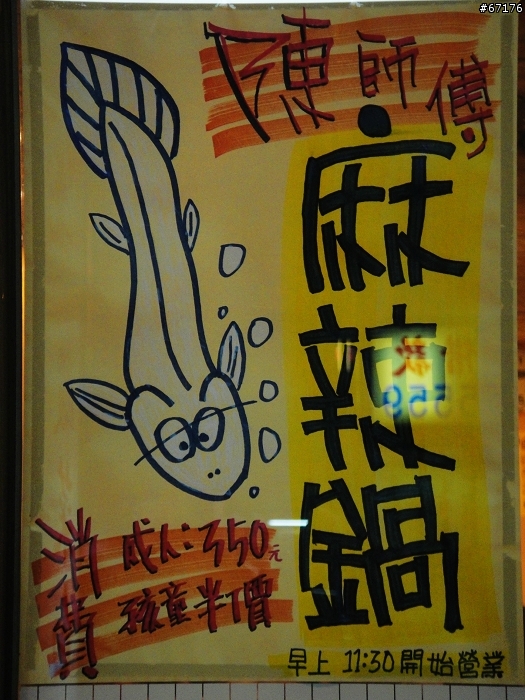 #67176
陳師傅
麻辣鍋
消費
成人:350元
孩童半價
早上 11:30 開始營業